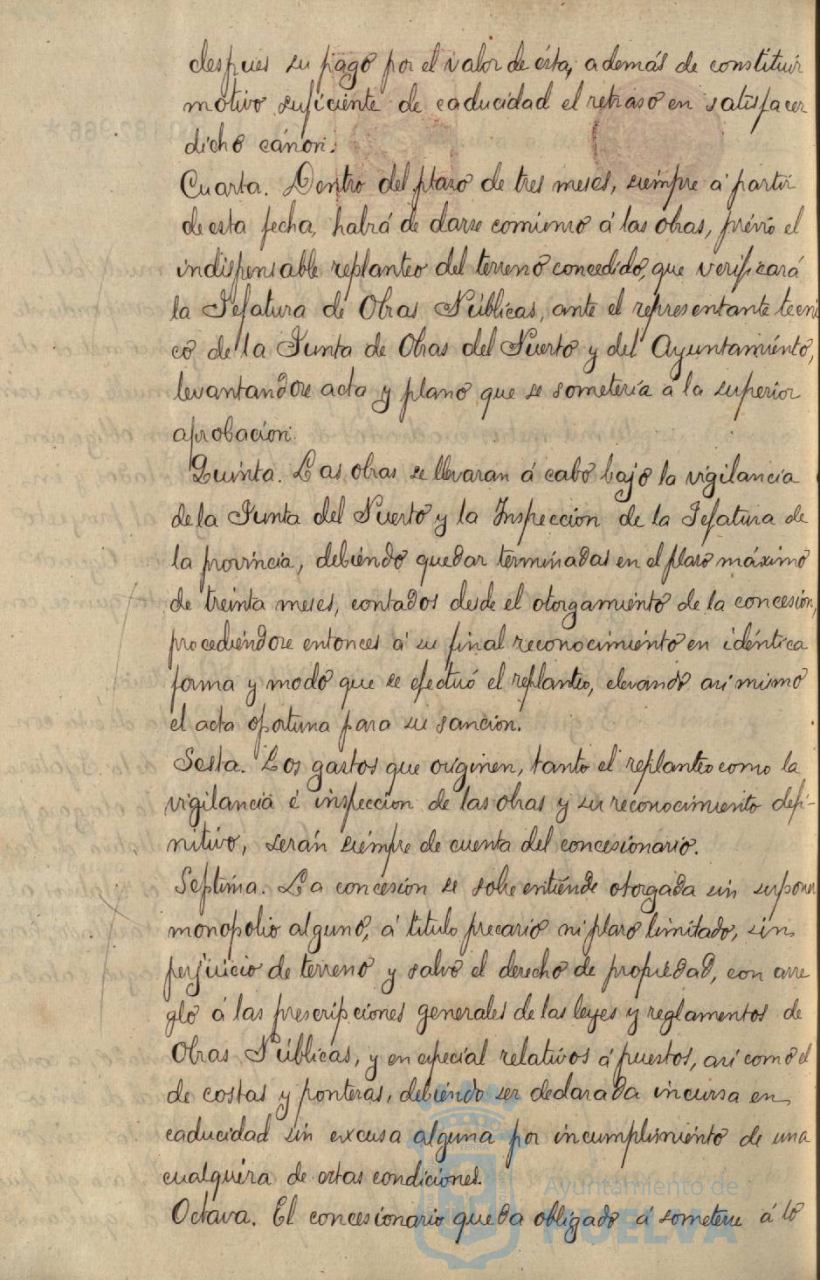 despues su pago por el valor de ésta, además de constituir
motivo suficiente de caducidad el retraso en satisfacer
dicho cánon.
Cuarta. Dentro del plazo de tres meses, siempre á partir
de esta fecha, habrá de darse comienzo á las obras, prévio el
indispensable replanteo del terreno concedido, que verificará
la Jefatura de Obras Públicas, ante el representante tecni
co de la Junta de Obras del Puerto y del Ayuntamiento,
levantandose acta y plano que se sometería a la superior
aprobacion.
Quinta. Las obras se llevaran á cabo bajo la vigilancia
de la Junta del Puerto y la Inspeccion de la Jefatura de
la provincia, debiendo quedar terminadas en el plazo máximo
de treinta meses, contados desde el otorgamiento de la concesion,
procediéndose entonces á su final reconocimiento en idéntica
forma y modo que se efectuó el replanteo, elevando asi mismo
el acta oportuna para su sancion.
Sesta. Los gastos que originen, tanto el replanteo como la
vigilancia é inspeccion de las obras y su reconocimiento defi-
nitivo, serán siempre de cuenta del concesionario.
Septima. La concesion se sobre entiende otorgada sin suponer
monopolio alguno, á titulo precario ni plazo limitado, sin
perjuicio de terreno y salvo el derecho de propiedad, con arre
glo á las prescripciones generales de las leyes y reglamentos de
Obras Públicas, y en especial relativos á puertos, asi como el
de costas y fronteras, debiendo ser declarada incursa en
caducidad sin excusa alguna por incumplimiento de una
cualquiera de estas condiciones.
Octava. El concesionario queda obligado á someterse á lo
Ayuntamiento de
HUELVA